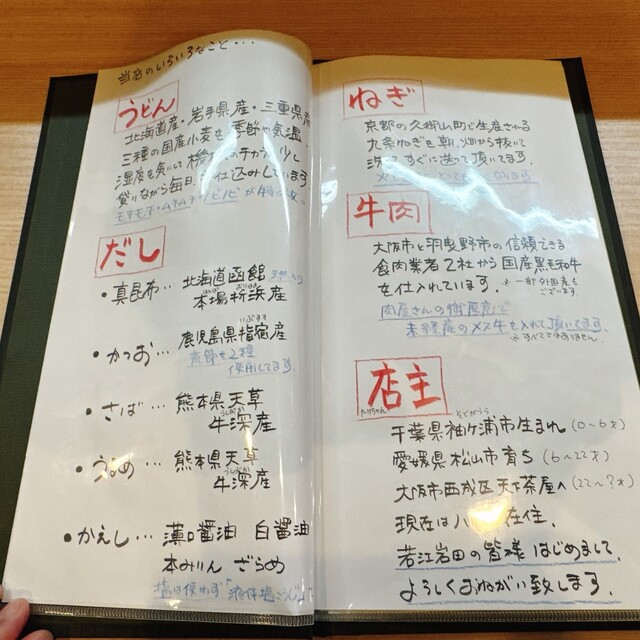 当店のいろいろなこと・・・
うどん
北海道産・岩手県産・三重県産
三種の国産小麦を季節や気温
湿度を気にして
少し
変えながら毎日
仕込みしています
だし
・真昆布… 北海道函館 天然
ほんば おりはま
本場折浜産
いぶすき
・かつお… 鹿児島県指宿産
荒節を2種
使用してます。
・さば… 熊本県天草
うしぶか
牛深産
・うるめ… 熊本県天草
うしぶか
牛深産
・かえし… 薄口醤油 白醤油
本みりん ざらめ
塩は使わず「液体塩こうじ」
ねぎ
京都の久御山町で生産される
九条ねぎを朝、畑から抜いて
すぐに送って頂いてます。
牛肉
大阪市と羽曳野市の信頼できる
食肉業者2社から国産黒毛和牛
を仕入れています。
※一部外国産も
ございます。
肉屋さんの御厚意で
未経産のメス牛を入れて頂いてます。
※すべてではありません
店主
たけちゃん
そでがうら
千葉県袖ヶ浦市生まれ(0〜6才)
愛媛県松山市育ち(6〜22才)
大阪市西成区天下茶屋へ(22〜?才)
現在は八
在住.
若江岩田の皆様はじめまして.
よろしくおねがい致します.